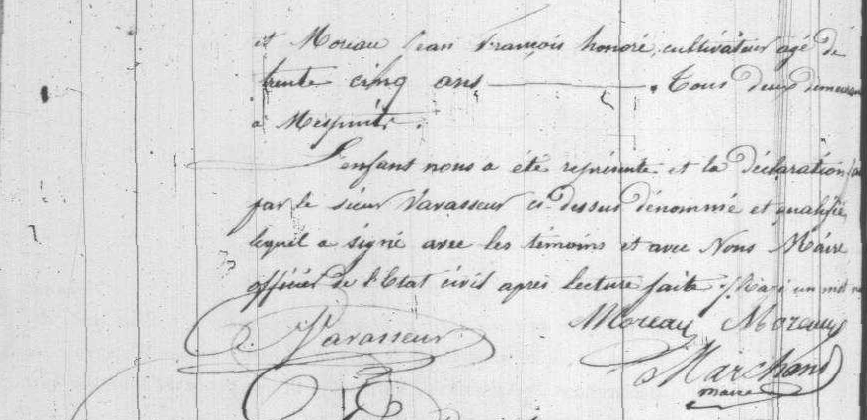 et Moreau Jean François honoré, cultivateur agé de
trente cinq ans ———— . Tous deux demeurant
à Mespuits.
L'enfant nous a été représenté et la déclaration
par le sieur Vavasseur ci-dessus dénommé et qualifié
lequel a signé avec les témoins et avec Nous Maire
officier de l'Etat civil après lecture faite. Rayé un mot
Moreau Moreau
Vavasseur
Marchand
maire